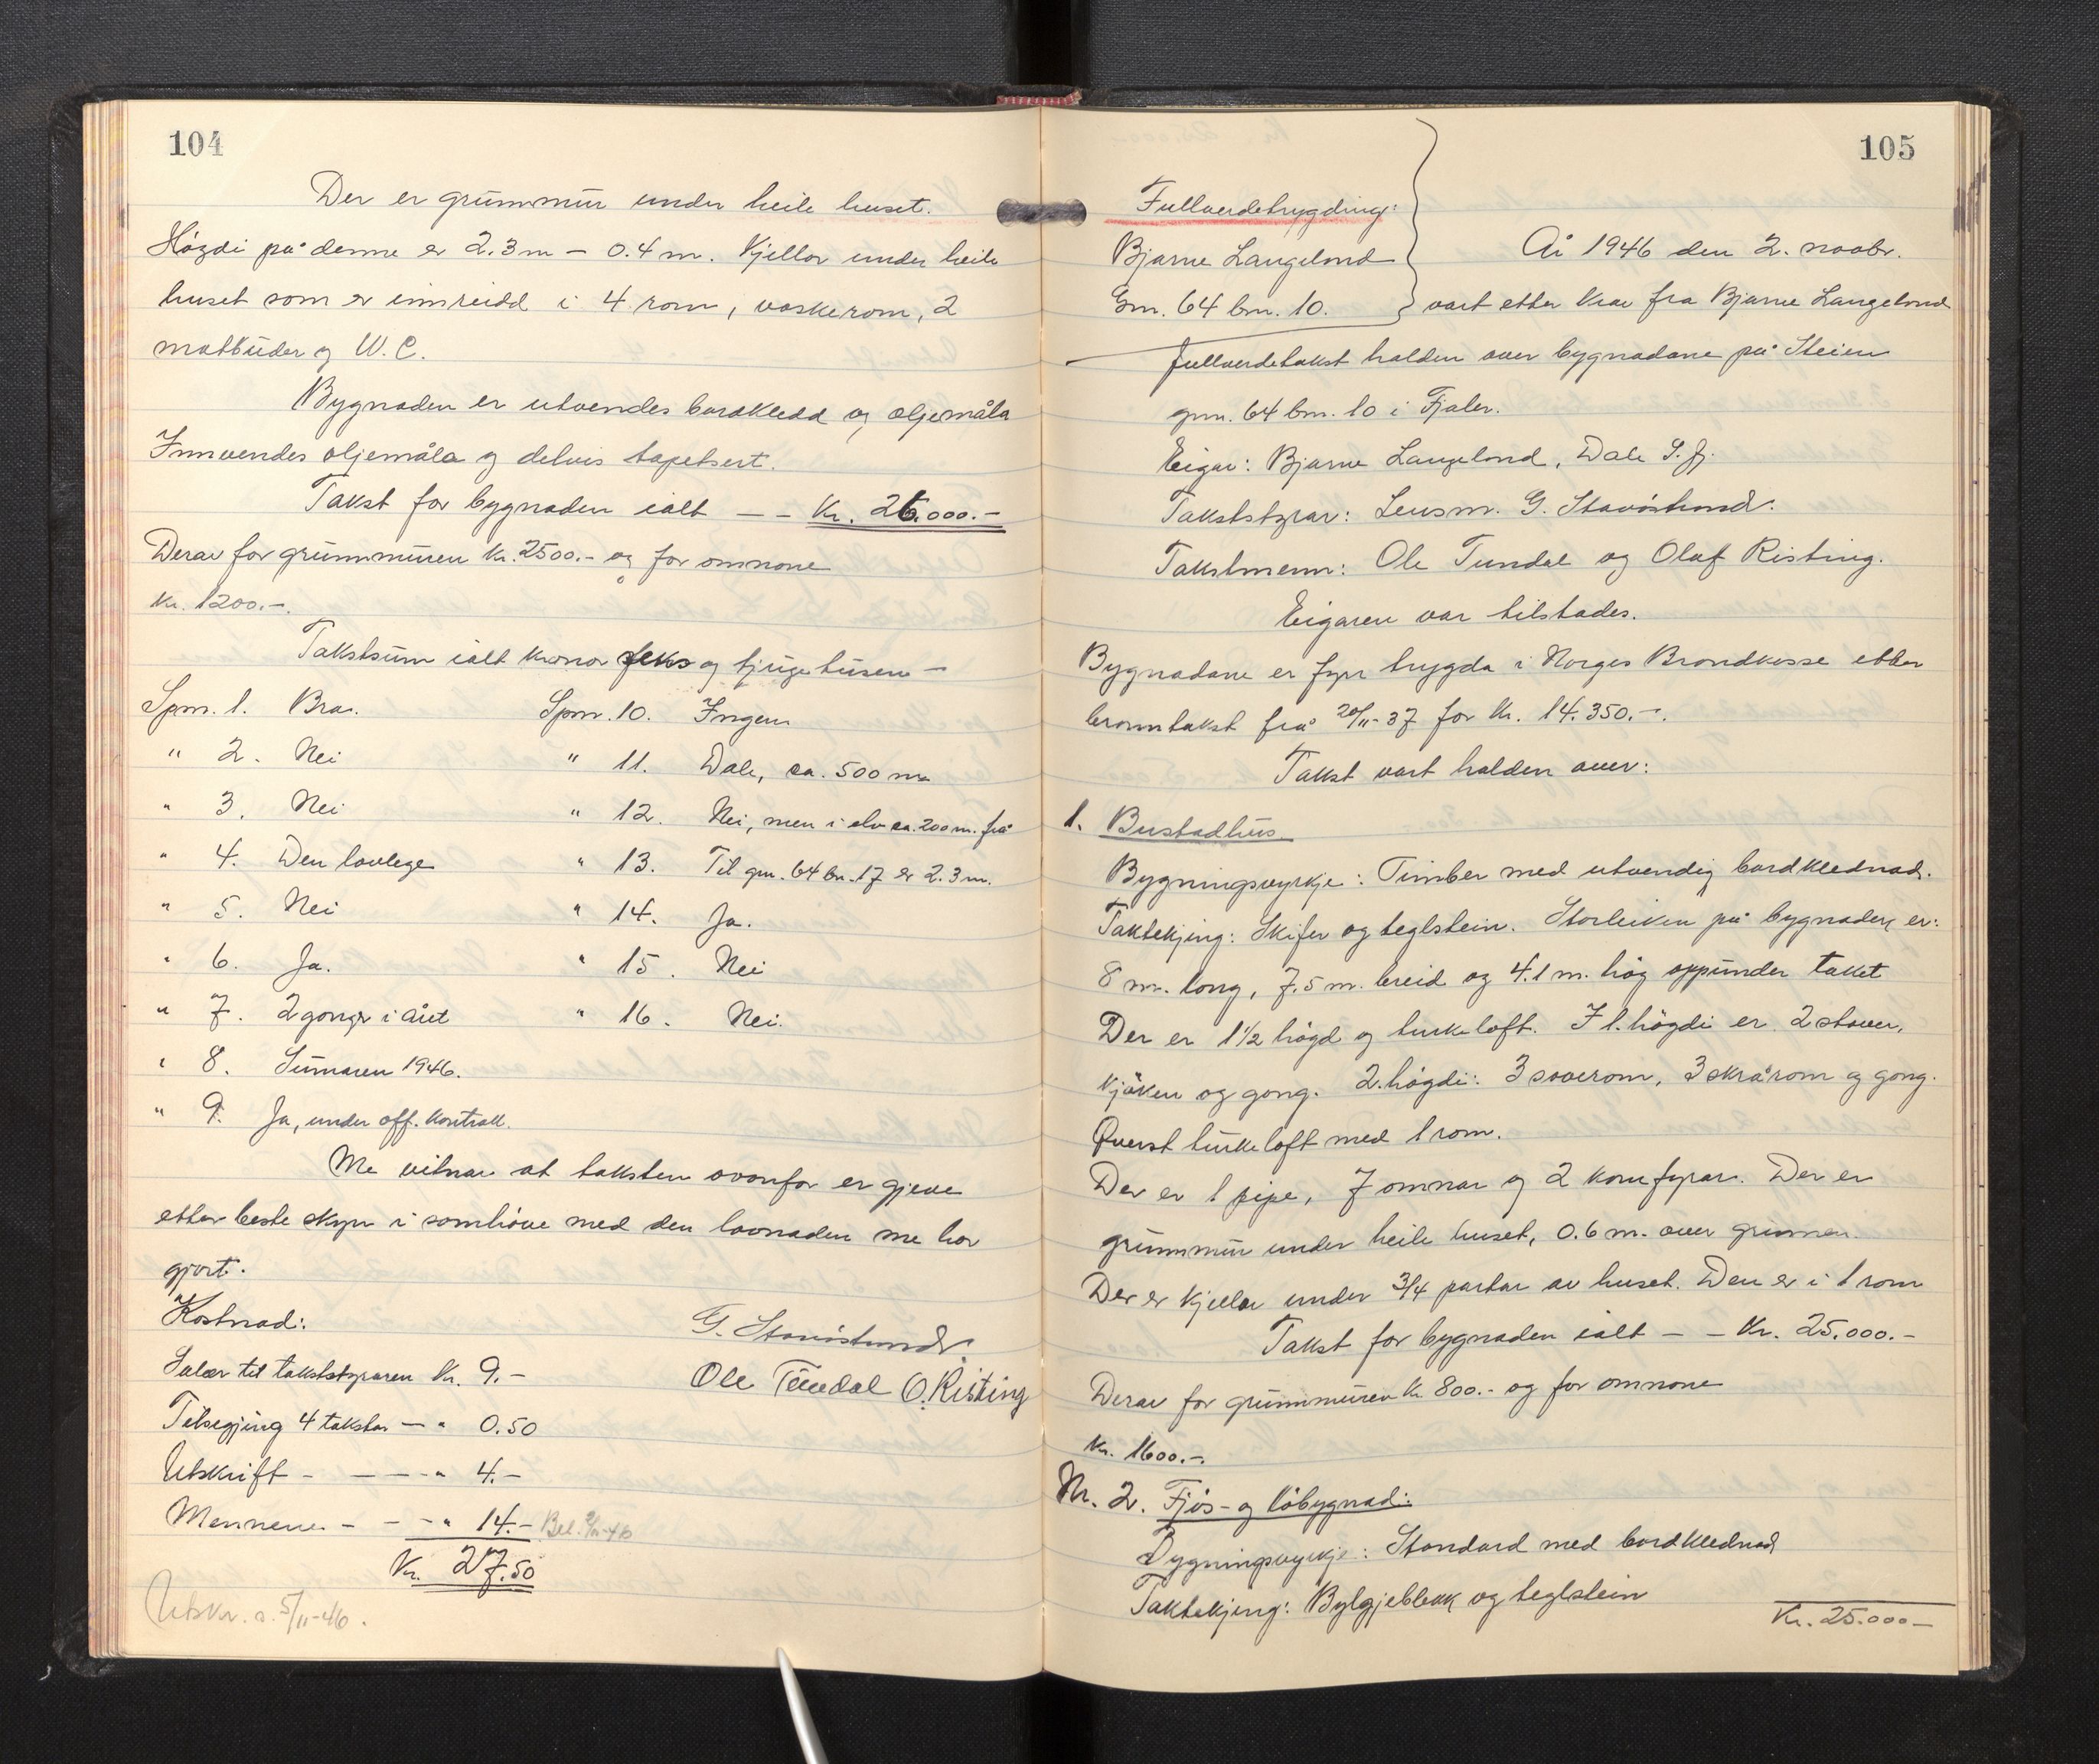 104
Der er grunnmur under heile huset.
Högdi på denne er 2.3 m – 0.4 m. Kjellar under heile
huset som er innreidd i 4 rom, vaskerom, 2
matbuder og W.C.
Bygnaden er utvendes bordkledd og oljemåla
Innvendes oljemåla og delvis tapetsert.
Takst for bygnaden ialt – – Kr. 26.000.–
Derav for grunnmuren kr. 2500.– og for omnane
kr. 1200.–.
Takstsum ialt kronor seks og tjuge tusen –
Spm. 1. Bra. Spm. 10. Ingen
" 2. Nei " 11. Dale, ca. 500 m
" 3. Nei " 12. Nei, men i elv ca. 200 m. frå
" 4. Den lovlege " 13. Til gnr. 64 bn. 17 er 2.3 m.
" 5. Nei " 14. Ja.
" 6. Ja. " 15. Nei
" 7. 2 gonger i året " 16. Nei.
" 8. Sumaren 1946.
" 9. Ja, under off. kontroll.
Me vitnar at taksten ovanfor er gjeve
etter beste skyn i samhöve med den lovnaden me har
gjort.
Kostnad:
G. Stavöstrand.
Salær til takststyraren Kr. 9.–
Ole Tundal O. Risting
Tilsegjing 4 takstar – " 0.50
Utskrift – – – – " 4.–
Mennene – – – " 14.– Bet. –46
Kr. 27.50
Utskr. s. 5/11–46.
105
Fullverdetrygding:
Bjarne Langeland
Gnr. 64 bnr. 10.
År 1946 den 2. novbr.
vart etter krav frå Bjarne Langeland
fullverdetakst halden over bygnadane på Steien
gnr. 64 bnr. 10 i Fjaler.
Eigar: Bjarne Langeland, Dale S. Fj.
Takststyrar: Lensm. G. Stavöstrand.
Takstmenn: Ole Tundal og Olaf Risting.
Eigaren var tilstades.
Bygnadane er fyrr trygda i Norges Brandkasse etter
branntakst frå 20/11–37 for Kr. 14.350.–.
Takst vart halden over:
1. Bustadhus
Bygningsvyrkje: Timber med utvendig bordklednad.
Taktekjing: Skifer og teglstein. Storleiken på bygnaden er:
8 m. lang, 7.5 m. breid og 4.1 m. høg oppunder taket
Der er 1 1/2 högd og turkeloft. I 1. högdi er 2 stover,
kjöken og gong. 2. högdi: 3 soverom, 3 skrårom og gong.
Øverst turkeloft med 1 rom.
Der er 1 pipe, 7 omnar og 2 komfyrar. Der er
grunnmur under heile huset, 0.6 m. over grunnen.
Der er kjellar under 3/4 partar av huset. Den er i 1 rom
Takst for bygnaden ialt – – Kr. 25.000.–
Derav for grunnmuren Kr. 800.– og for omnane
Kr. 1600.–.
Nr. 2. Fjös- og löbygnad:
Bygningsvyrkje: Standard med bordklednad
Taktekjing: Bylgjeblekk og teglstein
Kr. 25.000–